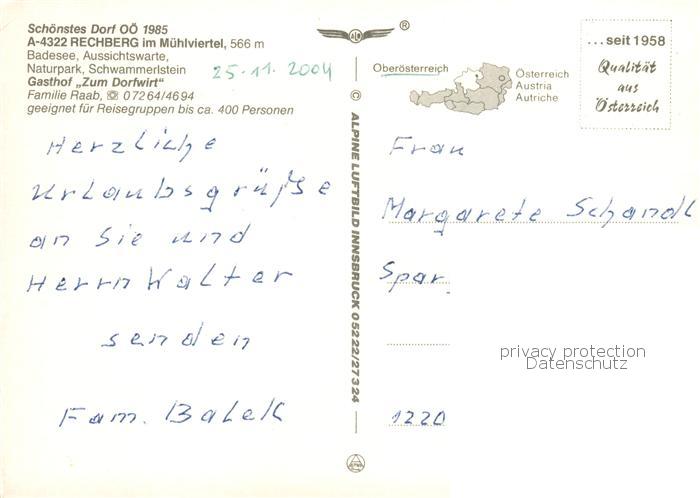 Schönstes Dorf OÖ 1985
A-4322 RECHBERG im Mühlviertel, 566 m
Badesee, Aussichtswarte,
Naturpark, Schwammerlstein
Gasthof „Zum Dorfwirt"
Familie Raab, ☏ 07264/4694
geeignet für Reisegruppen bis ca. 400 Personen
25.11.2004
Herzliche
Urlaubsgrüße
an Sie und
Herrn Walter
senden
Fam. Balek
®
© ALPINE LUFTBILD INNSBRUCK 05222/27324
Oberösterreich
Österreich
Austria
Autriche
...seit 1958
Qualität
aus
Österreich
Frau
Margarete Schandl
Spar.
privacy protection
Datenschutz
1220